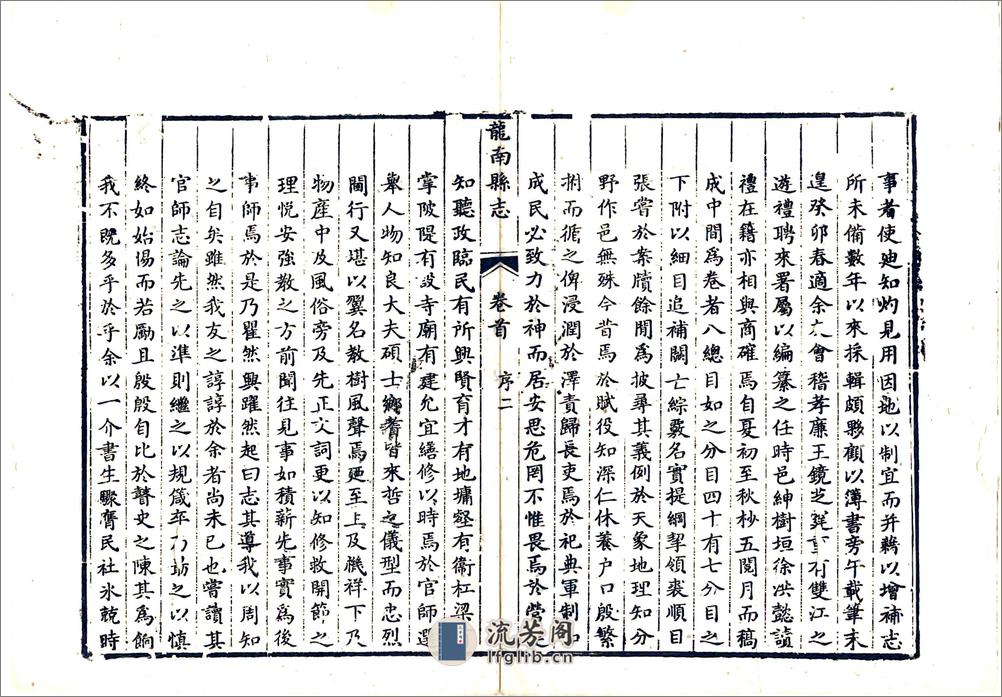 事者使迪知灼見用因地以制宜而并藉以增補志
所未備數年以來採輯頗夥顧以簿書旁午載筆未
遑癸卯春適余友會稽孝廉王鏡芝巽言有雙江之
遊禮聘來署屬以編纂之任時邑紳樹垣徐洪懿讀
禮在籍亦相與商確焉自夏初至秋杪五閱月而稿
成中間為卷者八總目如之分目四十有七分目之
下附以細目追補闕亡綜覈名實提綱挈領裘順目
張嘗於案牘餘閒為披尋其義例於天象地理知分
野作邑無殊今昔焉於賦役知深仁休養户口殷繁
捬而循之俾浸潤於澤責歸長吏焉於祀典軍制知
成民必致力於神而居安思危罔不惟畏焉於營
龍南縣志 卷首 序二
知聽政臨民有所興賢育才有地墉壑有衛杠梁
掌陂隄有設寺廟有建允宜繕修以時焉於官師選
舉人物知良大夫碩士鄉耆皆來哲之儀型而忠烈
閫行又堪以翼名教樹風聲焉迺至上及禨祥下乃
物產中及風俗旁及先正文詞更以知修救開節之
理悅安強教之方前聞往見事如積薪先事實為後
事師焉於是乃瞿然興躍然起曰志其導我以周知
之自矣雖然我友之諄諄於余者尚未已也嘗讀其
官師志論先之以準則繼之以規箴卒乃勗之以慎
終如始惕而若勵且殷殷自比於瞽史之陳其為餉
我不旣多乎於乎余以一介書生驟膺民社氷兢時
流芳阁
lfglib.cn